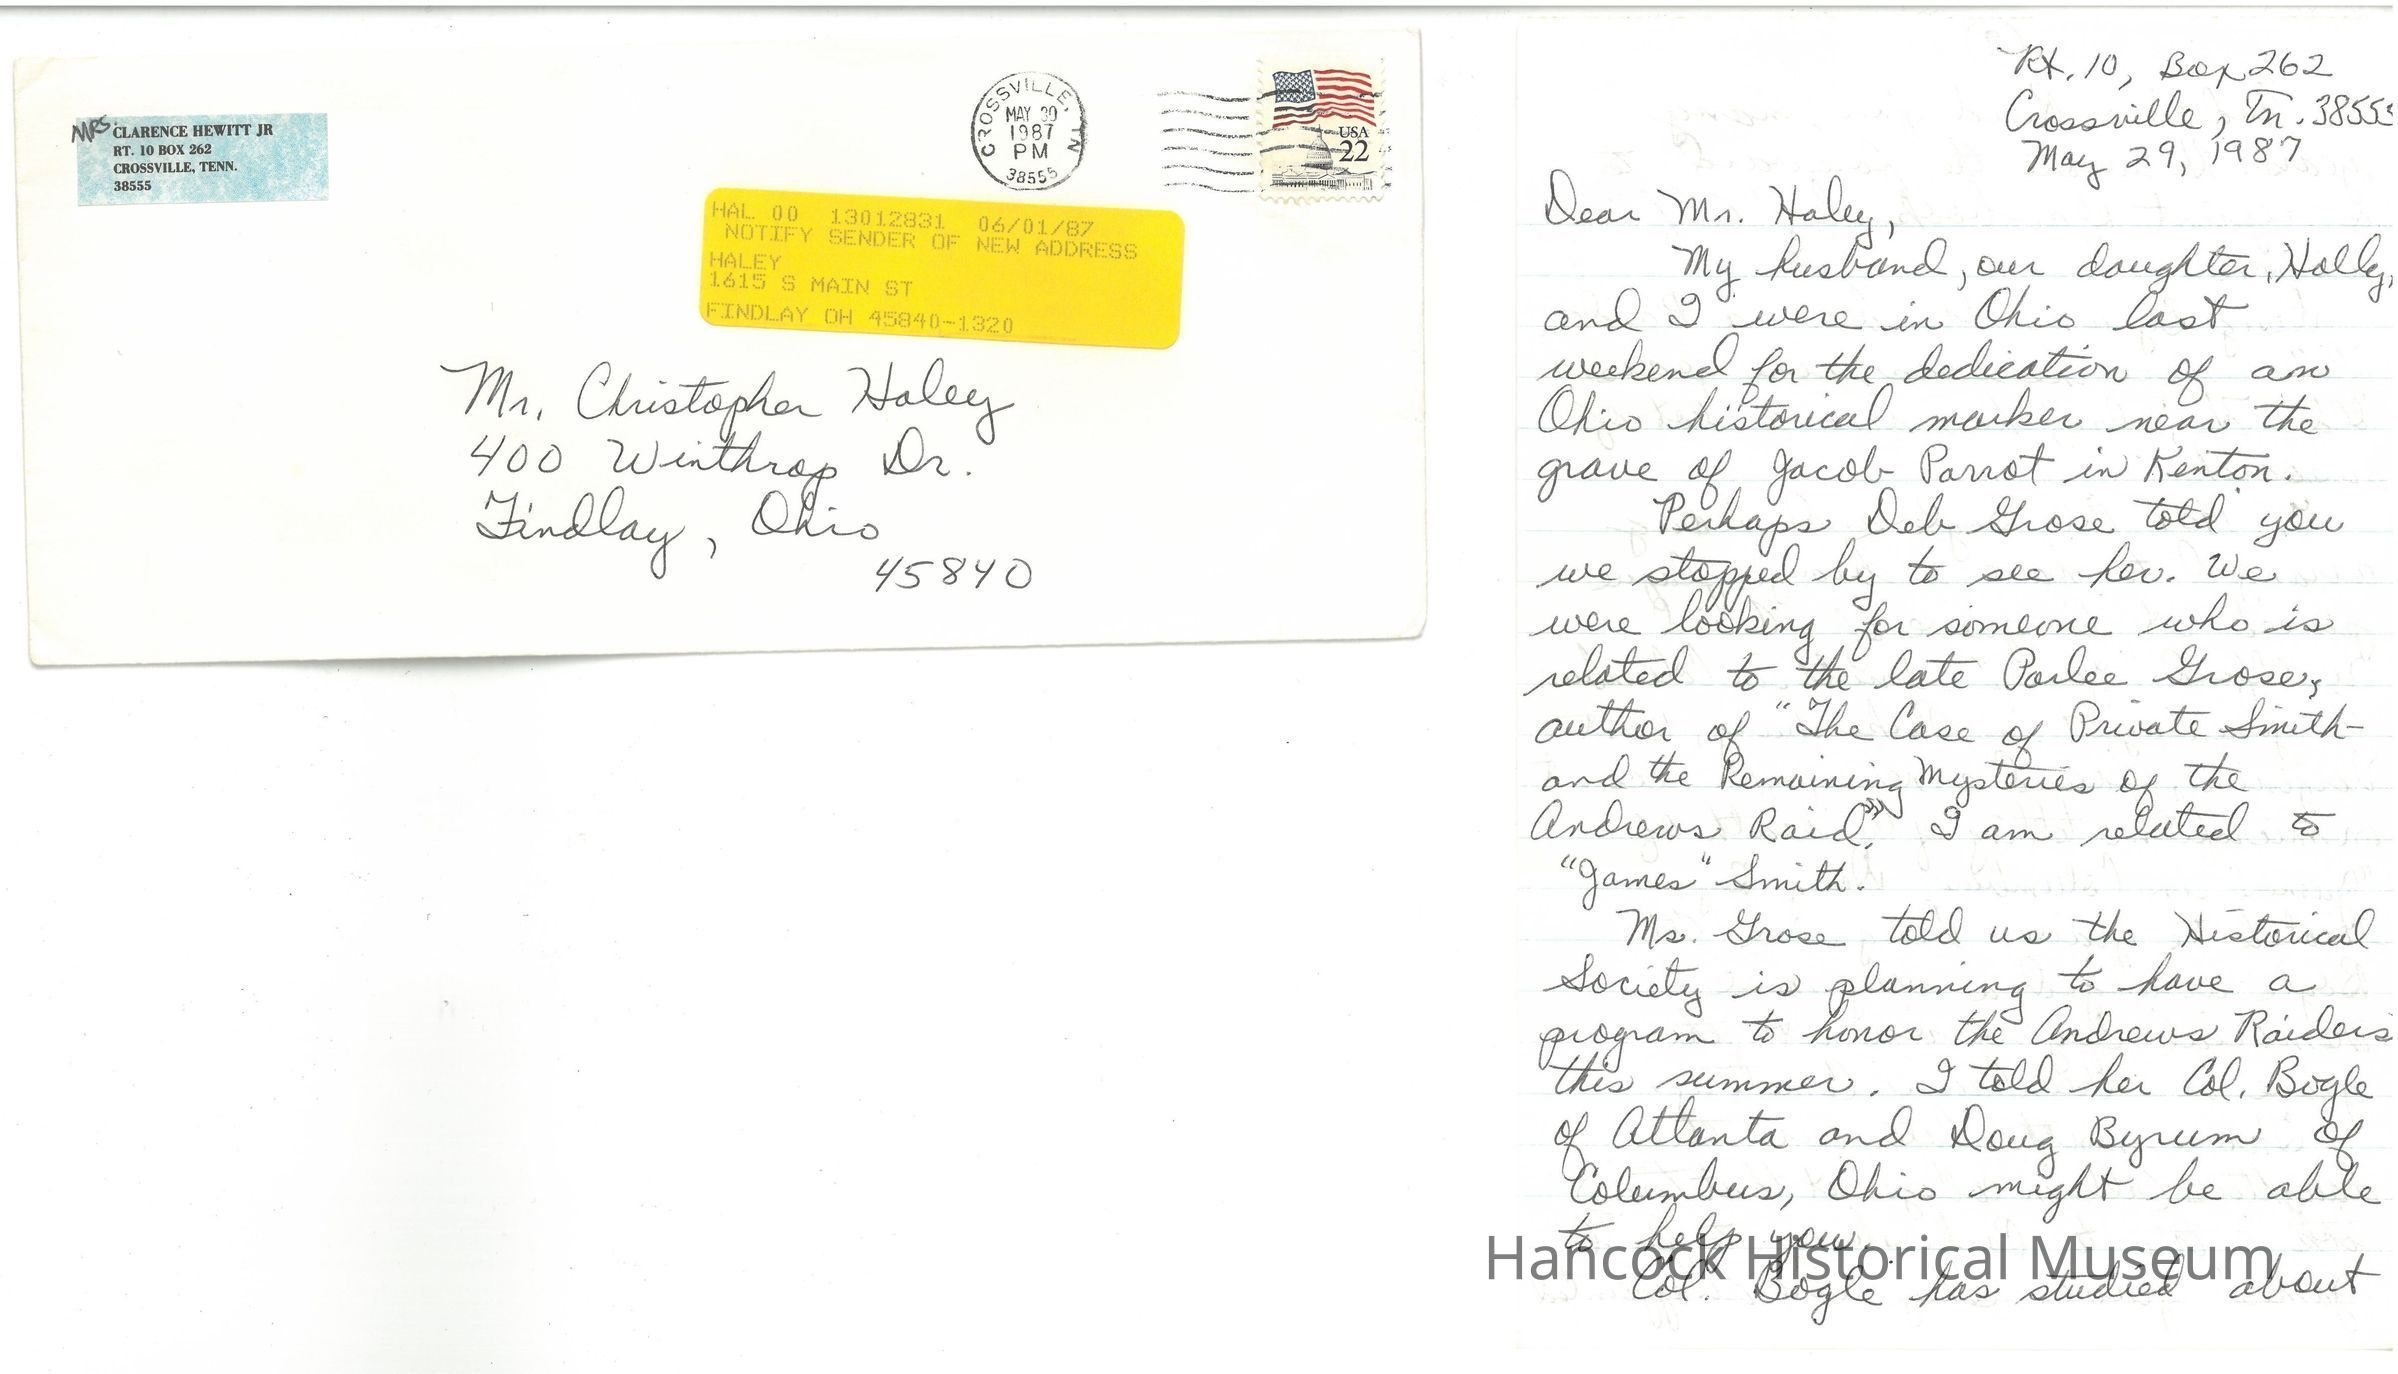 MRS. CLARENCE HEWITT JR
RT. 10 BOX 262
CROSSVILLE, TENN.
38555
CROSSVILLE, TN
MAY 30
1987
PM
38555
USA
22
HAL 00 13012831 06/01/87
NOTIFY SENDER OF NEW ADDRESS
HALEY
1615 S MAIN ST
FINDLAY OH 45840-1320
Mr. Christopher Haley
400 Winthrop Dr.
Findlay, Ohio
45840
Rt. 10, Box 262
Crossville, Tn. 38555
May 29, 1987
Dear Mr. Haley,
My husband, our daughter, Holly,
and I were in Ohio last
weekend for the dedication of an
Ohio historical marker near the
grave of Jacob Parrot in Kenton.
Perhaps Deb Grose told you
we stopped by to see her. We
were looking for someone who is
related to the late Parlee Grose,
author of "The Case of Private Smith-
and the Remaining Mysteries of the
Andrews Raid." I am related to
"James" Smith.
Ms. Grose told us the Historical
Society is planning to have a
program to honor the Andrews Raiders
this summer. I told her Col. Bogle
of Atlanta and Doug Byrum of
Columbus, Ohio might be able
to help you.
Hancock Historical Museum
Col. Bogle has studied about